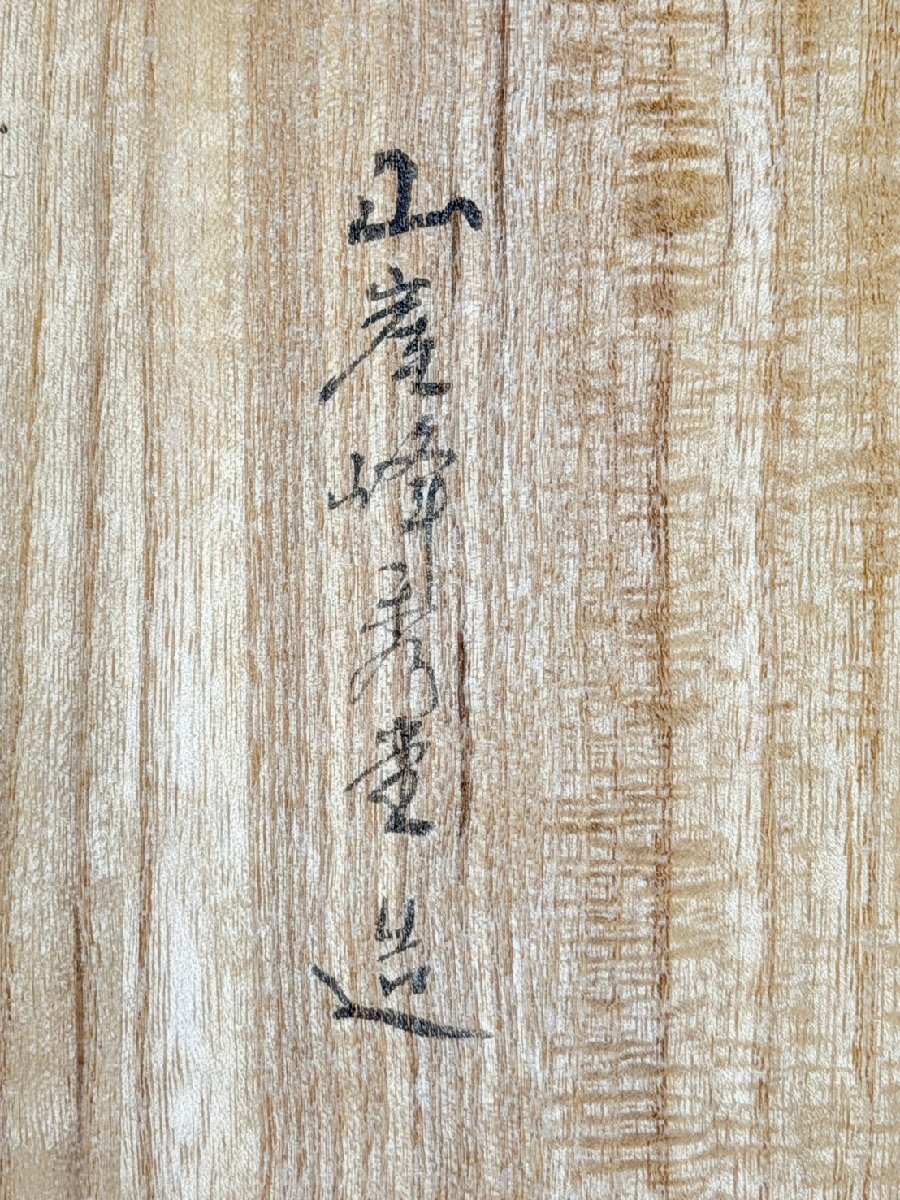 山崖峰秀堂造